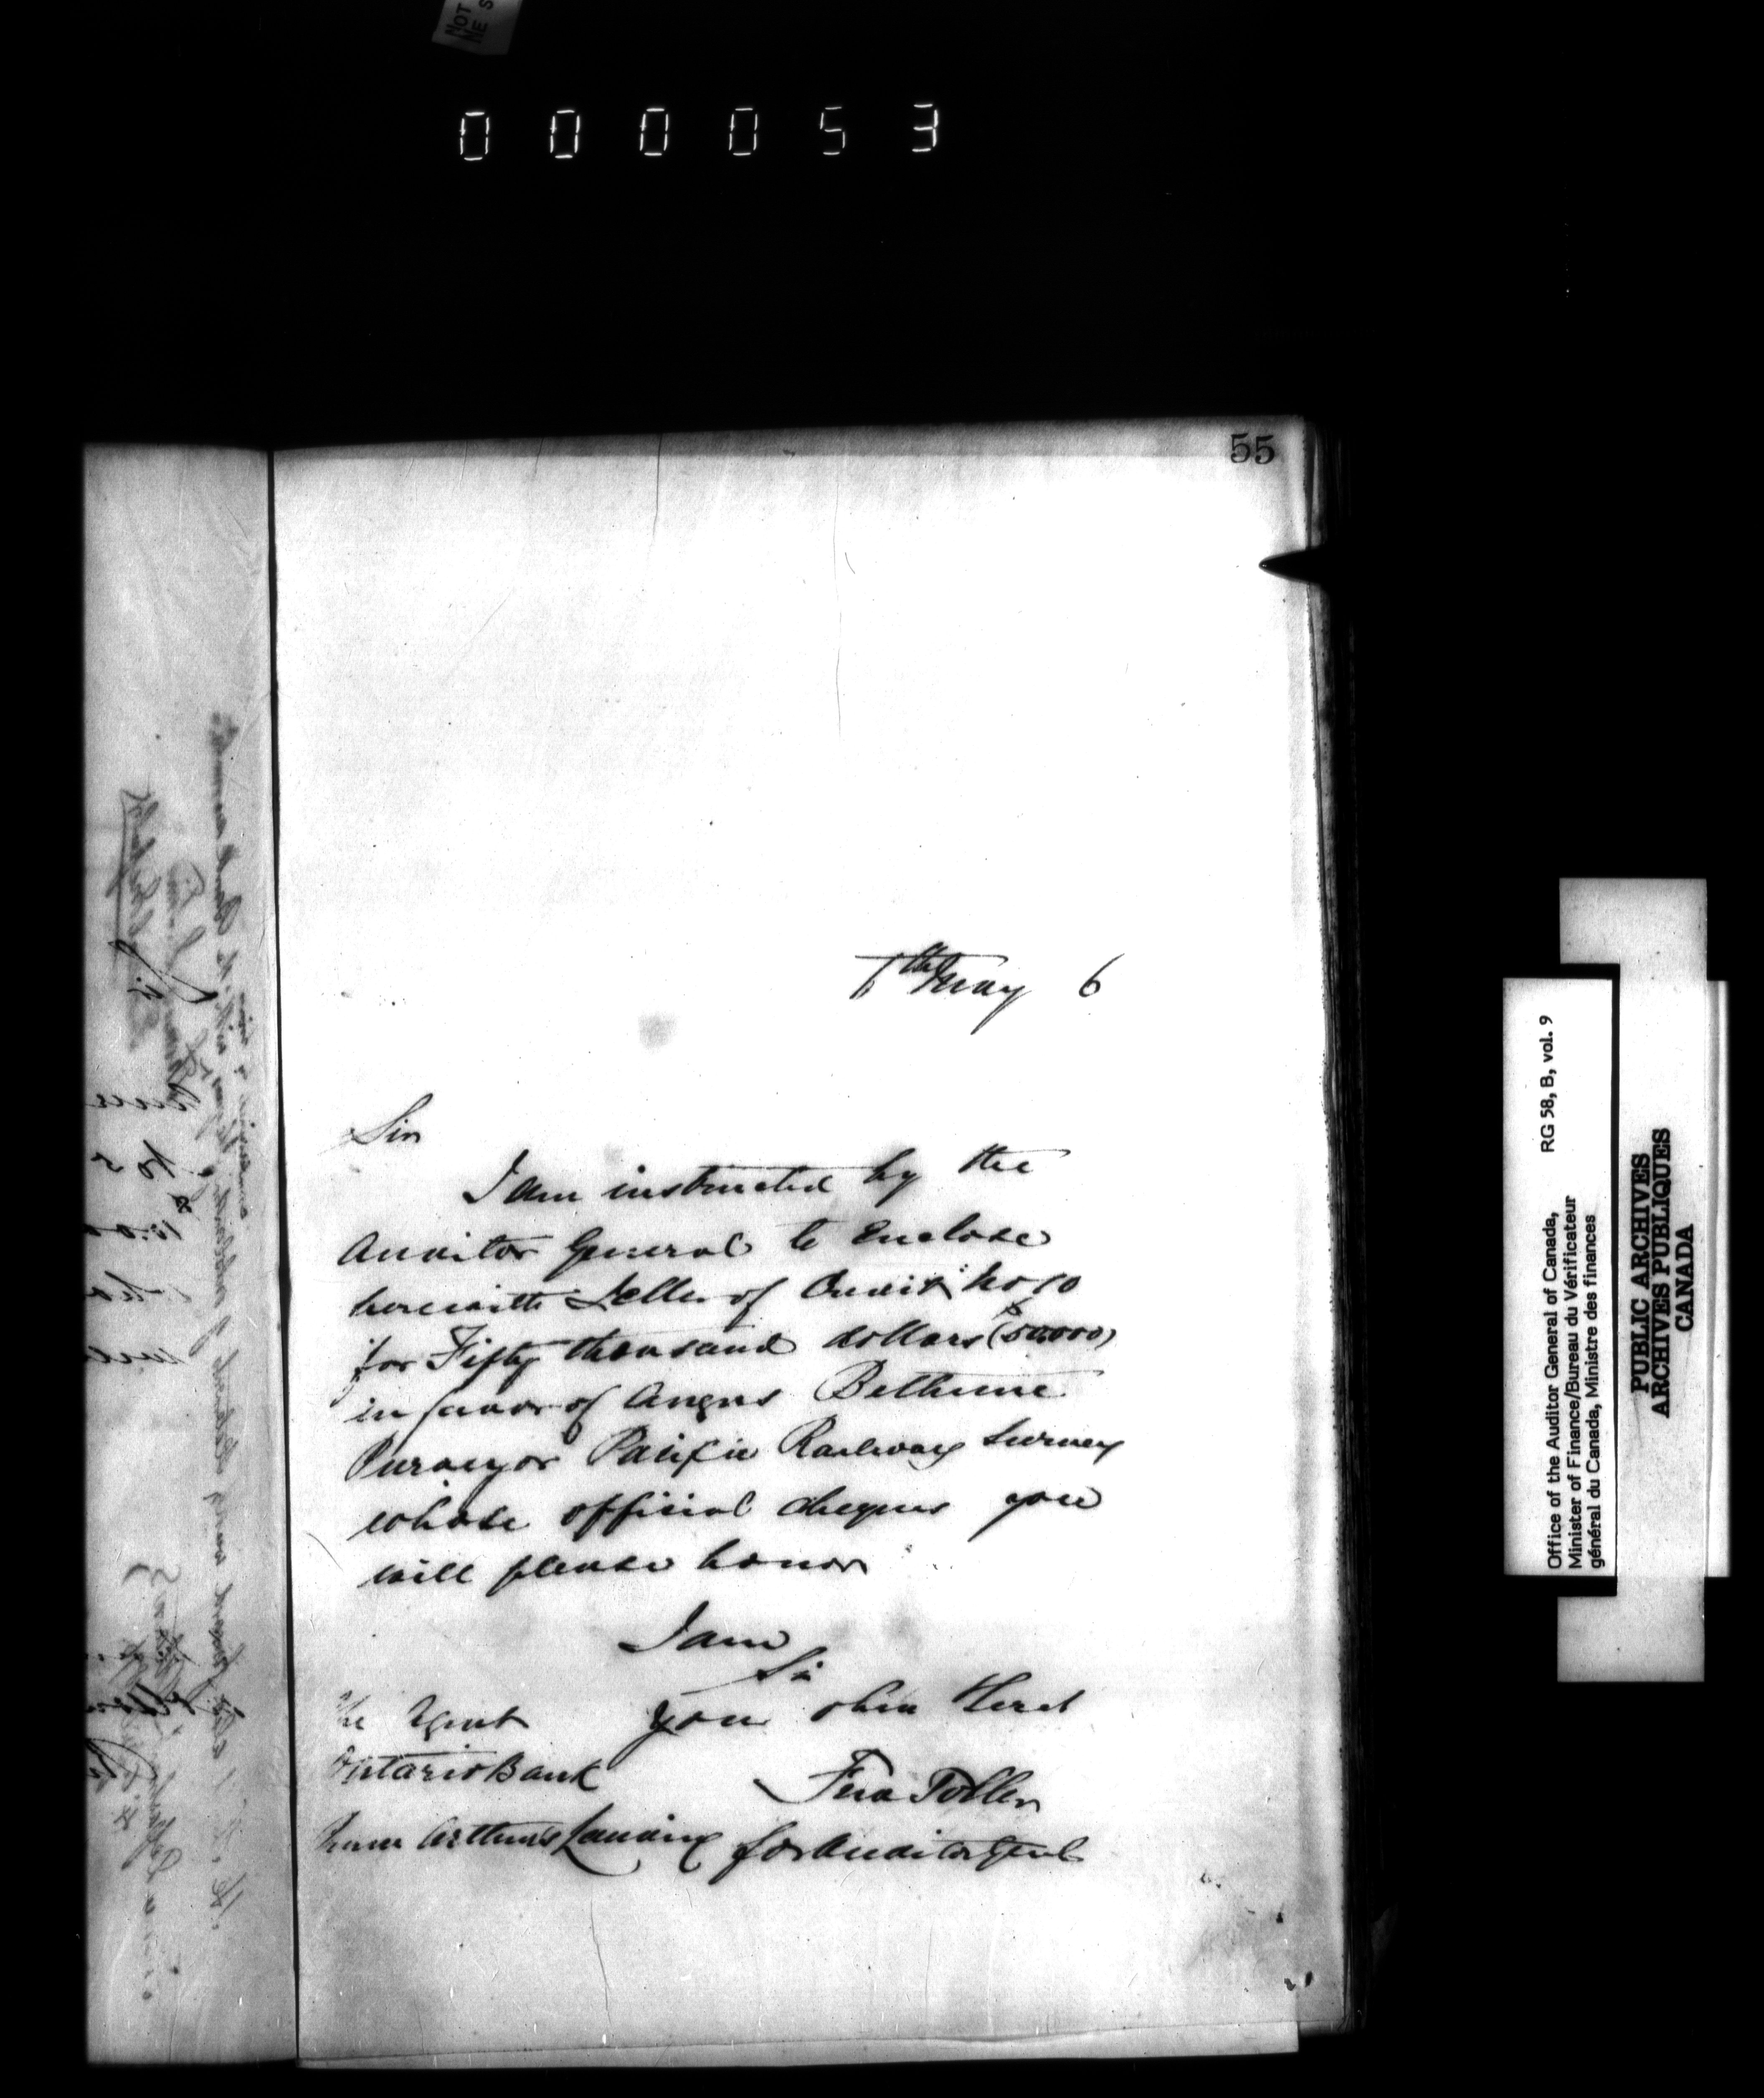 000053
55
7th May 6
Sir
I am instructed by the
Auditor General to Enclose
herewith Letter of Credit No 10
for Fifty thousand dollars ($50,000)
in favor of Angus Bethune
Purveyor Pacific Railway Survey
whose official cheques you
will please honor
I am
Sir
Your Obdn Servt
The Agent
Ontario Bank
Prince Arthur's Landing
Fred Toller
for Auditor Genl
Office of the Auditor General of Canada, RG 58, B, vol. 9
Minister of Finance/Bureau du Vérificateur
général du Canada, Ministre des finances
PUBLIC ARCHIVES
ARCHIVES PUBLIQUES
CANADA